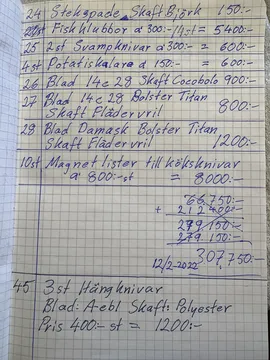 24 Stekspade Skaft Björk 150:-
Fisklubbor a 300:- = 5400:-
25 2st Svampknivar a 300:- = 600:-
4st Potatisskalare a 150:- = 600:-
26 Blad 14c28 Skaft Cocobolo 900:-
27 Blad 14c28 Bolster Titan
Skaft Flädervril 800:-
28 Blad Damask Bolster Titan
Skaft Flädervril 1200:-
10st Magnetlister till köksknivar
a 800:-st = 8000:-
66,750:-
+ 212400:-
279 150:-
279 150:-
12/2-2022 307,750:-
45 3st Hängknivar
Blad: A-ebl Skaft: Polyester
Pris 400:- st = 1200:-